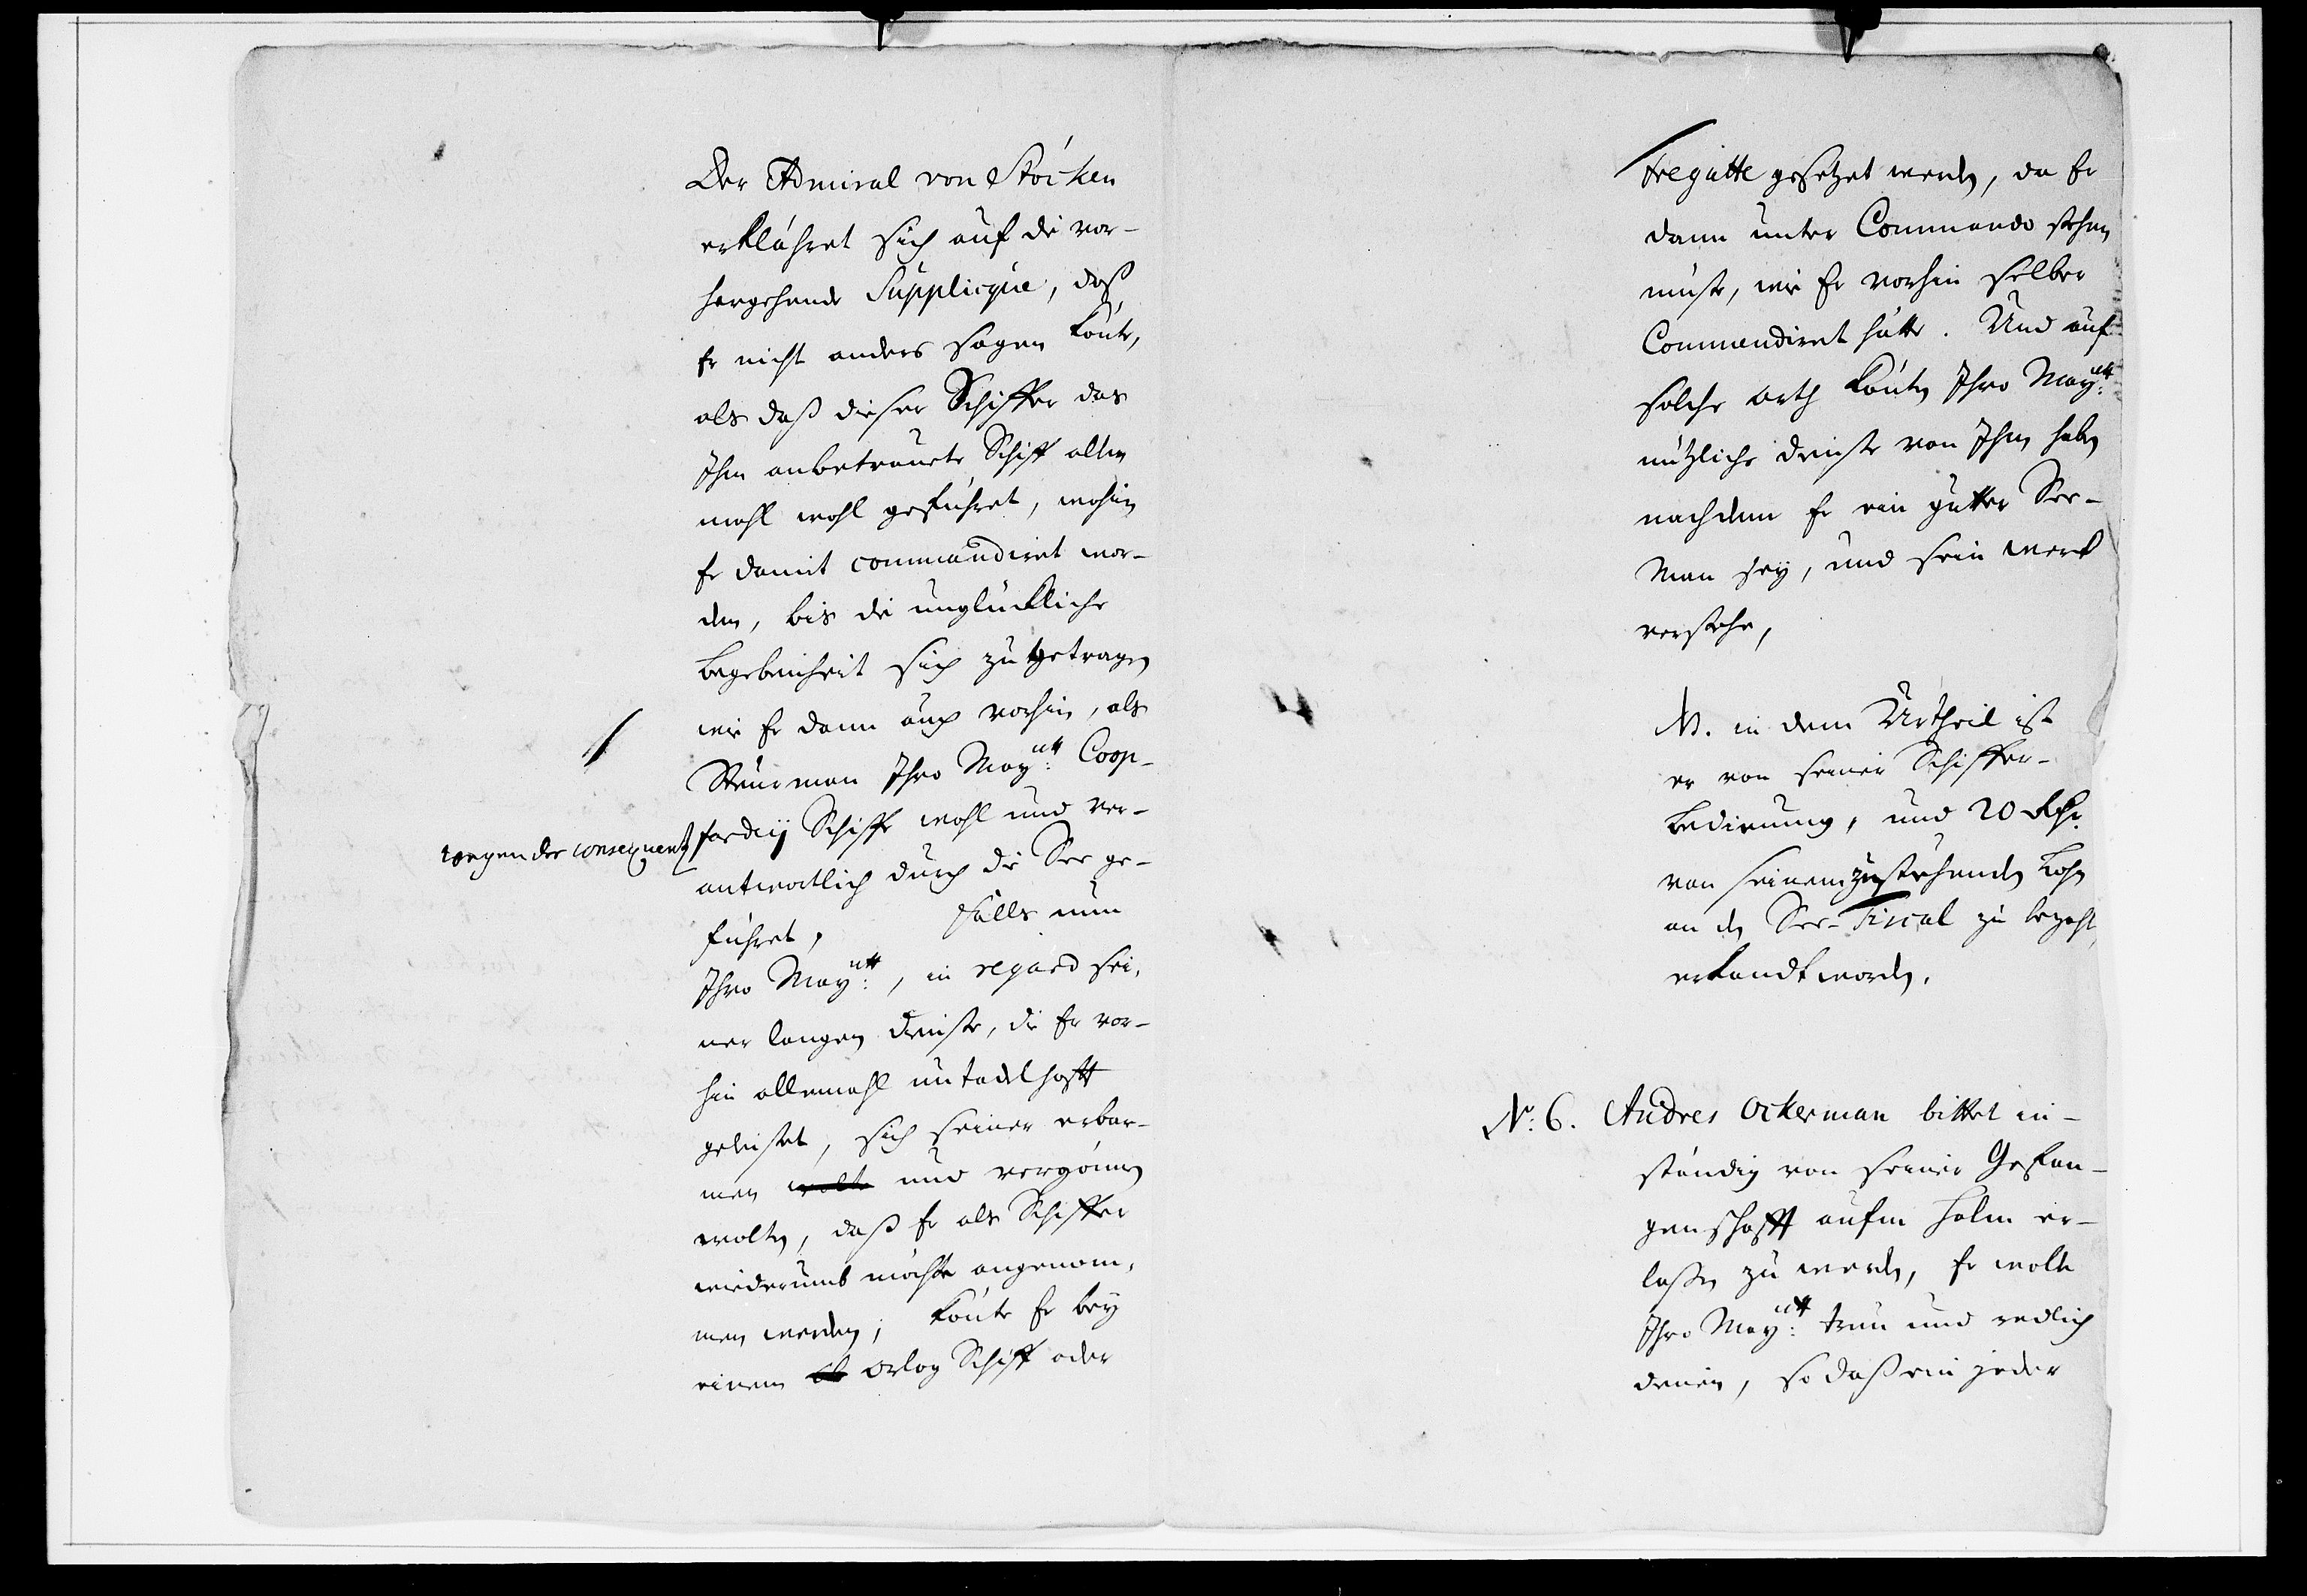 Der Admiral von Stöcken
erklähret sich auf die vor-
hergehende Supplicque, daß
Er nicht anders sagen könte,
als daß dieser Schiffer das
Ihm anbetrauete Schiff alle
mahl wohl geführet, wohin
Er damit commandiret wor-
den, bis die unglückliche
begebenheit sich zugetragen
wie Er dann auch vorhin, als
Steurman Ihro Maytt: Coop-
fardij Schiffe wohl und ver-
wegen der consequentz
antwortlich durch die See ge-
führet, falls nun
Ihro Maytt:, in regard sei-
ner langen dienste, die Er vor-
hin allemahl untadelhafft
geleistet, sich seiner erbar-
men wolte und vergönnen
wolten, daß Er als Schiffer
wiederumb möchte angenom-
men werden, könte Er bey
einem Orlog Schiff oder
Fregatte gesetzet werden, da Er
dann unter Commando stehen
müste, wie Er vorhin selber
Commandiret hätte. Und auf
solche arth könten Ihro Maytt:
nützliche dienste von Ihm haben
nachdem Er ein gutter See-
Man sey, und sein werck
verstehe,
NB. in dem Urtheil ist
er von seiner Schiffer-
bedienung, und 20 Rthr.
von seinem zustehenden Lohn
an den See-Fiscal zu bezahlen
erkandt worden.
No: 6. Andres Ockerman bittet in-
ständig von seiner Gefan-
genschafft aufm Holm er-
laßen zu werden, Er wolte
Ihro Maytt: treu und redlich
dienen, so daß ein jeder